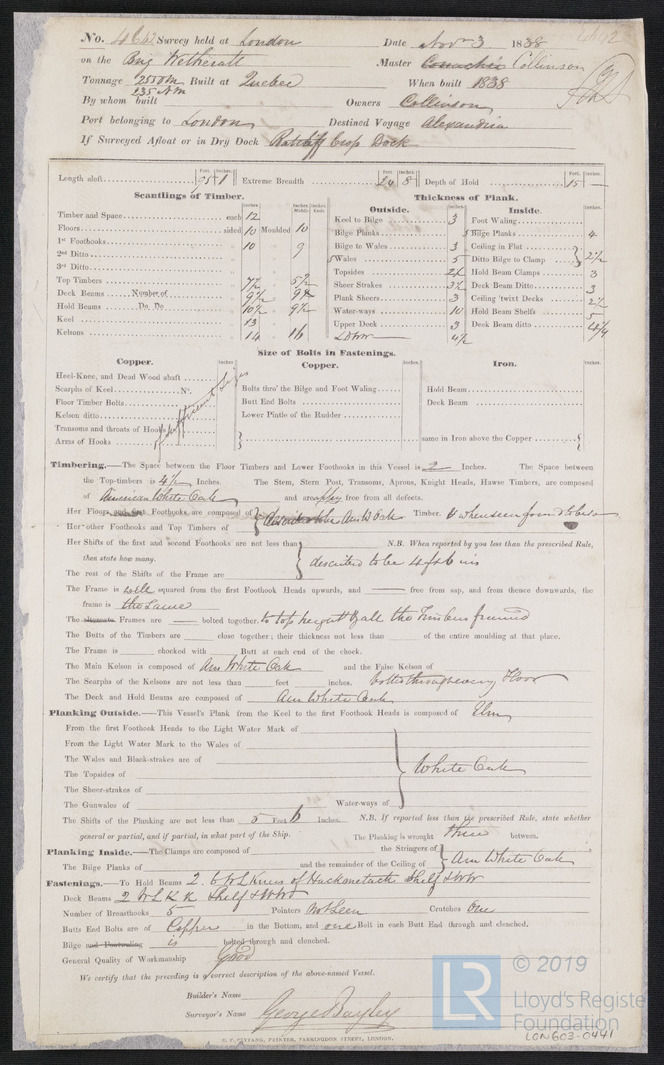 No. 4642 Survey held at London Date Novr 3 1838
on the Brig Wetherall Master Collinson
Tonnage 255 OM 235 NM Built at Quebec When built 1838
By whom built Owners Collinson
Port belonging to London Destined Voyage Alexandria
If Surveyed Afloat or in Dry Dock Ratcliff Cross Dock
Length aloft Feet. Inches. Extreme Breadth Feet. 24 Inches. 8 Depth of Hold Feet. 15 Inches. —
Scantlings of Timber.
Timber and Space each 12
Floors sided 10 Moulded 10
1st Foothooks 10 9
2nd Ditto
3rd Ditto
Top Timbers 7½ 5½
Deck Beams Number of 9½
Hold Beams Do. Do. 10½ 9½
Keel 13
Kelsons 14 16
Thickness of Plank.
Outside.
Keel to Bilge 3
Bilge Planks
Bilge to Wales 3
Wales 5
Topsides
Sheer Strakes
Plank Sheers 3
Water-ways 10
Upper Deck 3
4½
Inside.
Foot Waling
Bilge Planks 4
Ceiling in Flat
Ditto Bilge to Clamp 2½
Hold Beam Clamps 3
Deck Beam Ditto 3
Ceiling 'twixt Decks 2½
Hold Beam Shelfs 5
Deck Beam ditto
Size of Bolts in Fastenings.
Copper.
Heel-Knee, and Dead Wood abaft
Scarphs of Keel No.
Floor Timber Bolts
Kelson ditto
Transoms and throats of Hooks
Arms of Hooks
sufficient sizes
Copper.
Bolts thro' the Bilge and Foot Waling
Butt End Bolts
Lower Pintle of the Rudder
Iron.
Hold Beam
Deck Beam
same in Iron above the Copper
Timbering.—The Space between the Floor Timbers and Lower Foothooks in this Vessel is 2 Inches. The Space between
the Top-timbers is 4½ Inches. The Stem, Stern Post, Transoms, Aprons, Knight Heads, Hawse Timbers, are composed
of American White Oak and are free from all defects.
Her Floors and first Foothooks are composed of Am W Oak Timber. & when seen found to be so
Her other Foothooks and Top Timbers of
Her Shifts of the first and second Foothooks are not less than N.B. When reported by you less than the prescribed Rule,
then state how many. described to be 4 ft 6 ins
The rest of the Shifts of the Frame are
The Frame is well squared from the first Foothook Heads upwards, and — free from sap, and from thence downwards, the
frame is the same
The Frames are — bolted together. to top height & all the Timbers framed
The Butts of the Timbers are close together; their thickness not less than of the entire moulding at that place.
The Frame is chocked with Butt at each end of the chock.
The Main Kelson is composed of Am White Oak and the False Kelson of
The Scarphs of the Kelsons are not less than feet inches. bolted through every Floor
The Deck and Hold Beams are composed of Am White Oak
Planking Outside.—This Vessel's Plank from the Keel to the first Foothook Heads is composed of Elm
From the first Foothook Heads to the Light Water Mark of
From the Light Water Mark to the Wales of
The Wales and Black-strakes are of
The Topsides of White Oak
The Sheer-strakes of
The Gunwales of Water-ways of
The Shifts of the Planking are not less than 5 Feet 6 Inches. N.B. If reported less than the prescribed Rule, state whether
general or partial, and if partial, in what part of the Ship. The Planking is wrought three between.
Planking Inside.—The Clamps are composed of the Stringers of
The Bilge Planks of and the remainder of the Ceiling of Am White Oak
Fastenings.—To Hold Beams 2 Knees of Hackmetack Shelf & WW
Deck Beams 2 Shelf & WW
Number of Breasthooks 5 Pointers Not Seen Crutches One
Butts End Bolts are of Copper in the Bottom, and one Bolt in each Butt End through and clenched.
Bilge and Footwaling is bolted through and clenched.
General Quality of Workmanship Good
We certify that the preceding is a correct description of the above-named Vessel.
Builder's Name
Surveyor's Name George Bayley
PRINTER, FARRINGDON STREET, LONDON.
LR © 2019
Lloyd's Registe
Foundation
LON603-0441